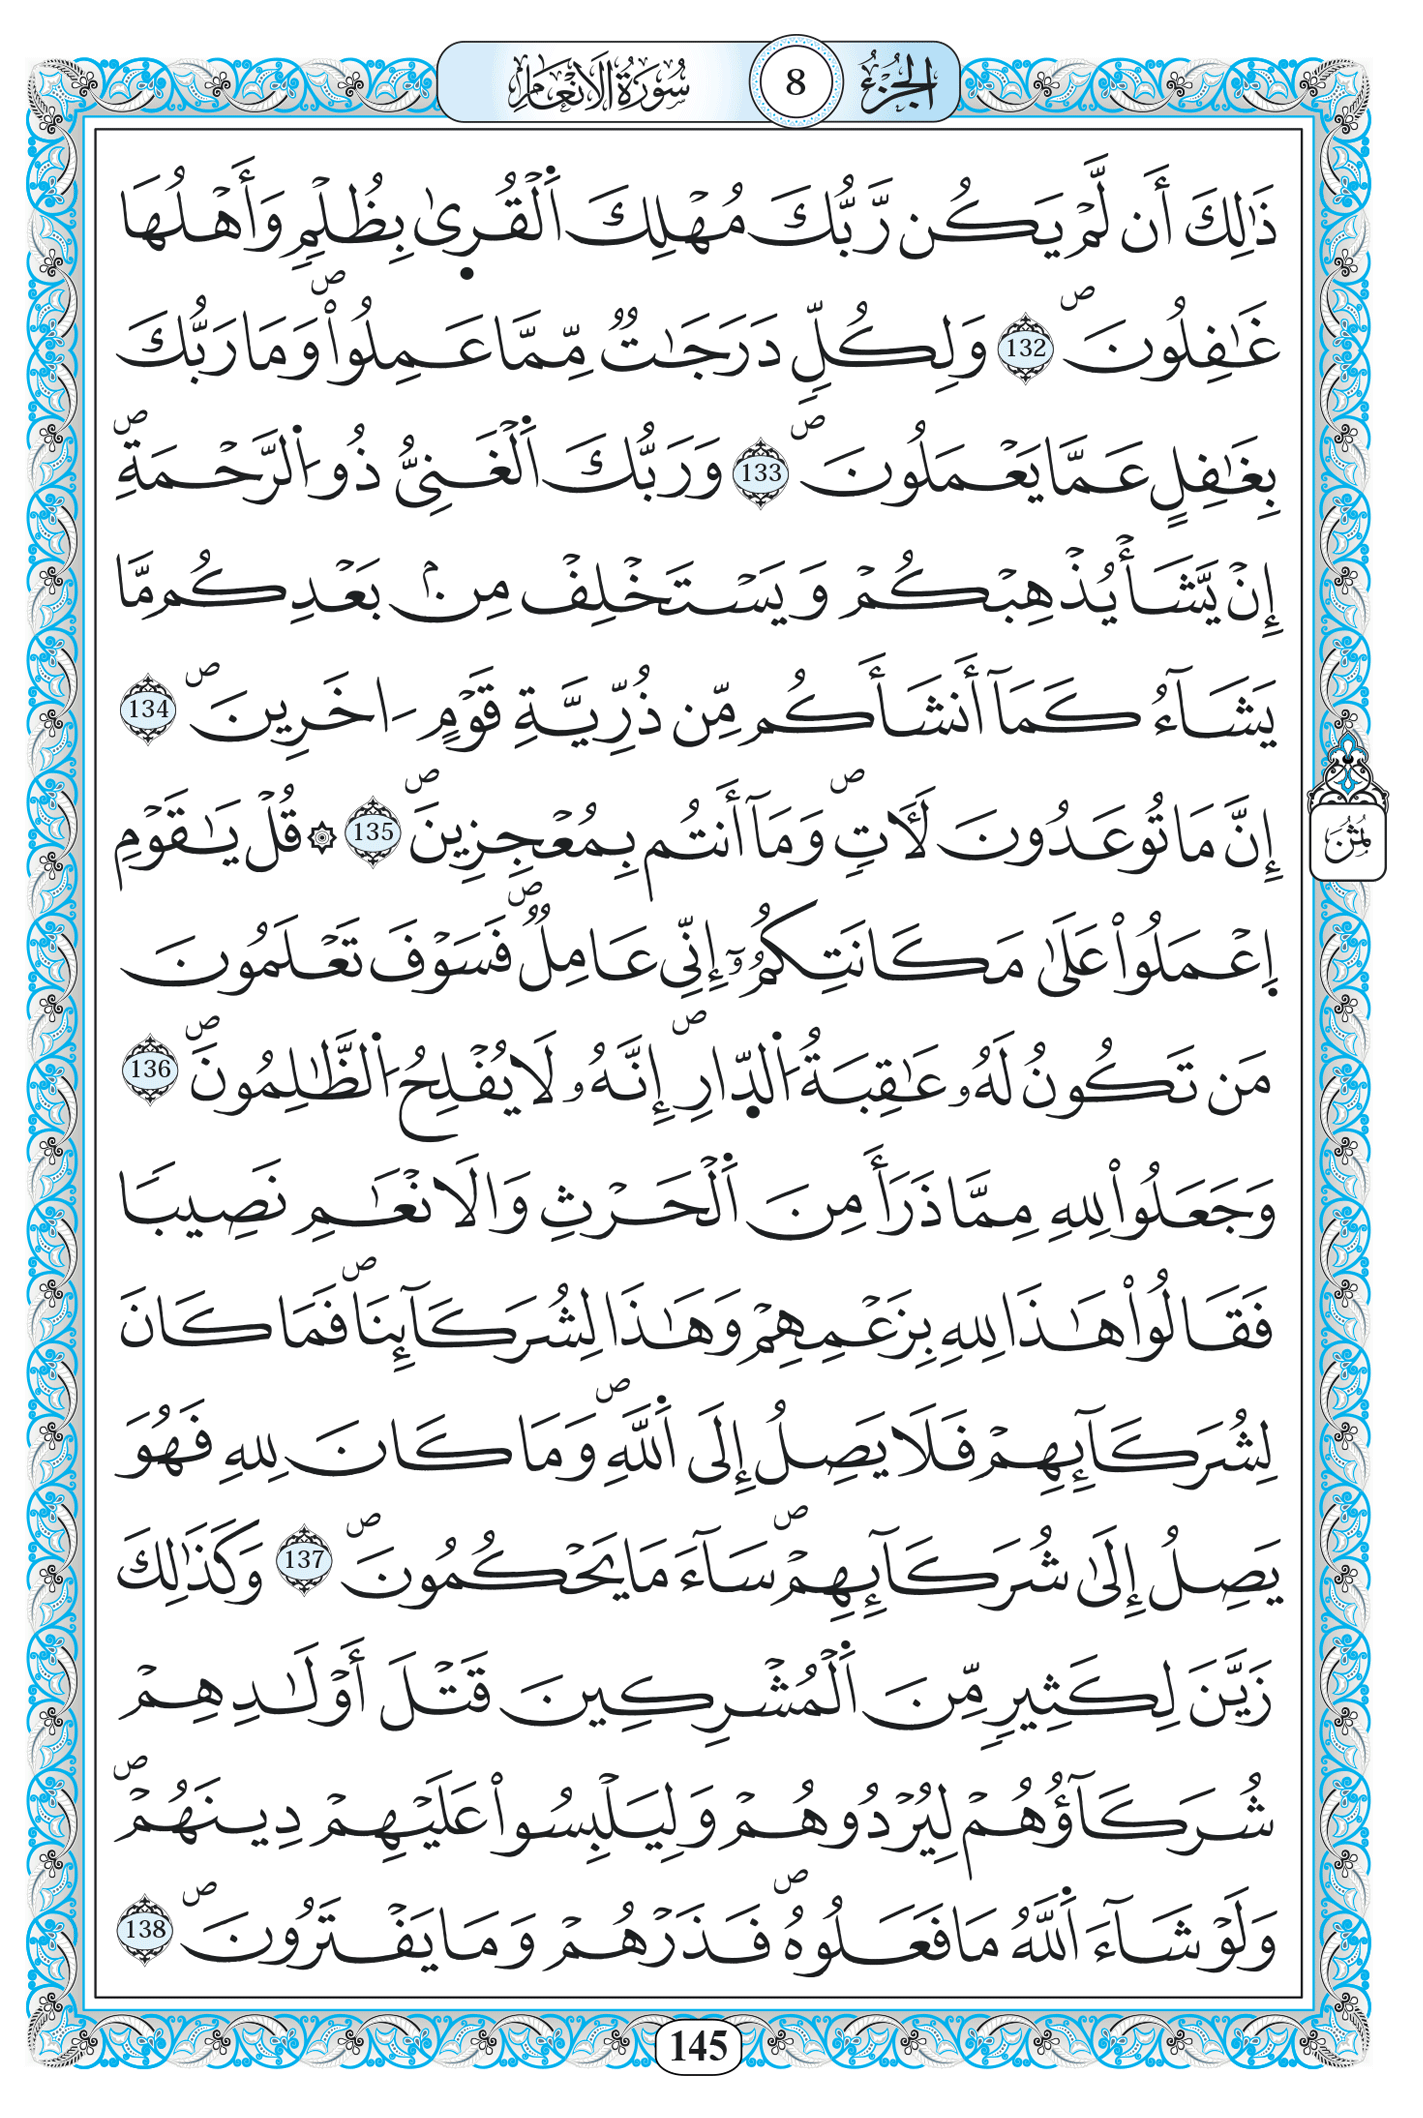 الجزء 8 سورة الانعام
ذَٰلِكَ أَن لَّمْ يَكُن رَّبُّكَ مُهْلِكَ اَ۬لْقُر۪ىٰ بِظُلْمٖ وَأَهْلُهَا
غَٰفِلُونَۖ 132 وَلِكُلّٖ دَرَجَٰتٞ مِّمَّا عَمِلُواْۖ وَمَا رَبُّكَ
بِغَٰفِلٍ عَمَّا يَعْمَلُونَۖ 133 وَرَبُّكَ اَ۬لْغَنِيُّ ذُو اُ۬لرَّحْمَةِۖ
إِنْ يَّشَأْ يُذْهِبْكُمْ وَيَسْتَخْلِفْ مِنۢ بَعْدِكُم مَّا
يَشَآءُ كَمَآ أَنشَأَكُم مِّن ذُرِّيَّةِ قَوْمٍ اٰخَرِينَۖ 134
إِنَّ مَا تُوعَدُونَ لَأٓتٖۖ وَمَآ أَنتُم بِمُعْجِزِينَۖ 135 ۞ قُلْ يَٰقَوْمِ
اِ۪عْمَلُواْ عَلَىٰ مَكَانَتِكُمُۥٓ إِنِّي عَامِلٞۖ فَسَوْفَ تَعْلَمُونَ
مَن تَكُونُ لَهُۥ عَٰقِبَةُ اُ۬لدّ۪ارِۖ إِنَّهُۥ لَا يُفْلِحُ اُ۬لظَّٰلِمُونَۖ 136
وَجَعَلُواْ لِلهِ مِمَّا ذَرَأَ مِنَ اَ۬لْحَرْثِ وَالَانْعَٰمِ نَصِيباٗ
فَقَالُواْ هَٰذَا لِلهِ بِزَعْمِهِمْ وَهَٰذَا لِشُرَكَآئِنَاۖ فَمَا كَانَ
لِشُرَكَآئِهِمْ فَلَا يَصِلُ إِلَى اَ۬للَّهِۖ وَمَا كَانَ لِلهِ فَهُوَ
يَصِلُ إِلَىٰ شُرَكَآئِهِمْۖ سَآءَ مَا يَحْكُمُونَۖ 137 وَكَذَٰلِكَ
زَيَّنَ لِكَثِيرٖ مِّنَ اَ۬لْمُشْرِكِينَ قَتْلَ أَوْلَٰدِهِمْ
شُرَكَآؤُهُمْ لِيُرْدُوهُمْ وَلِيَلْبِسُواْ عَلَيْهِمْ دِينَهُمْۖ
وَلَوْ شَآءَ اَ۬للَّهُ مَا فَعَلُوهُۖ فَذَرْهُمْ وَمَا يَفْتَرُونَۖ 138
ثُمُن
145